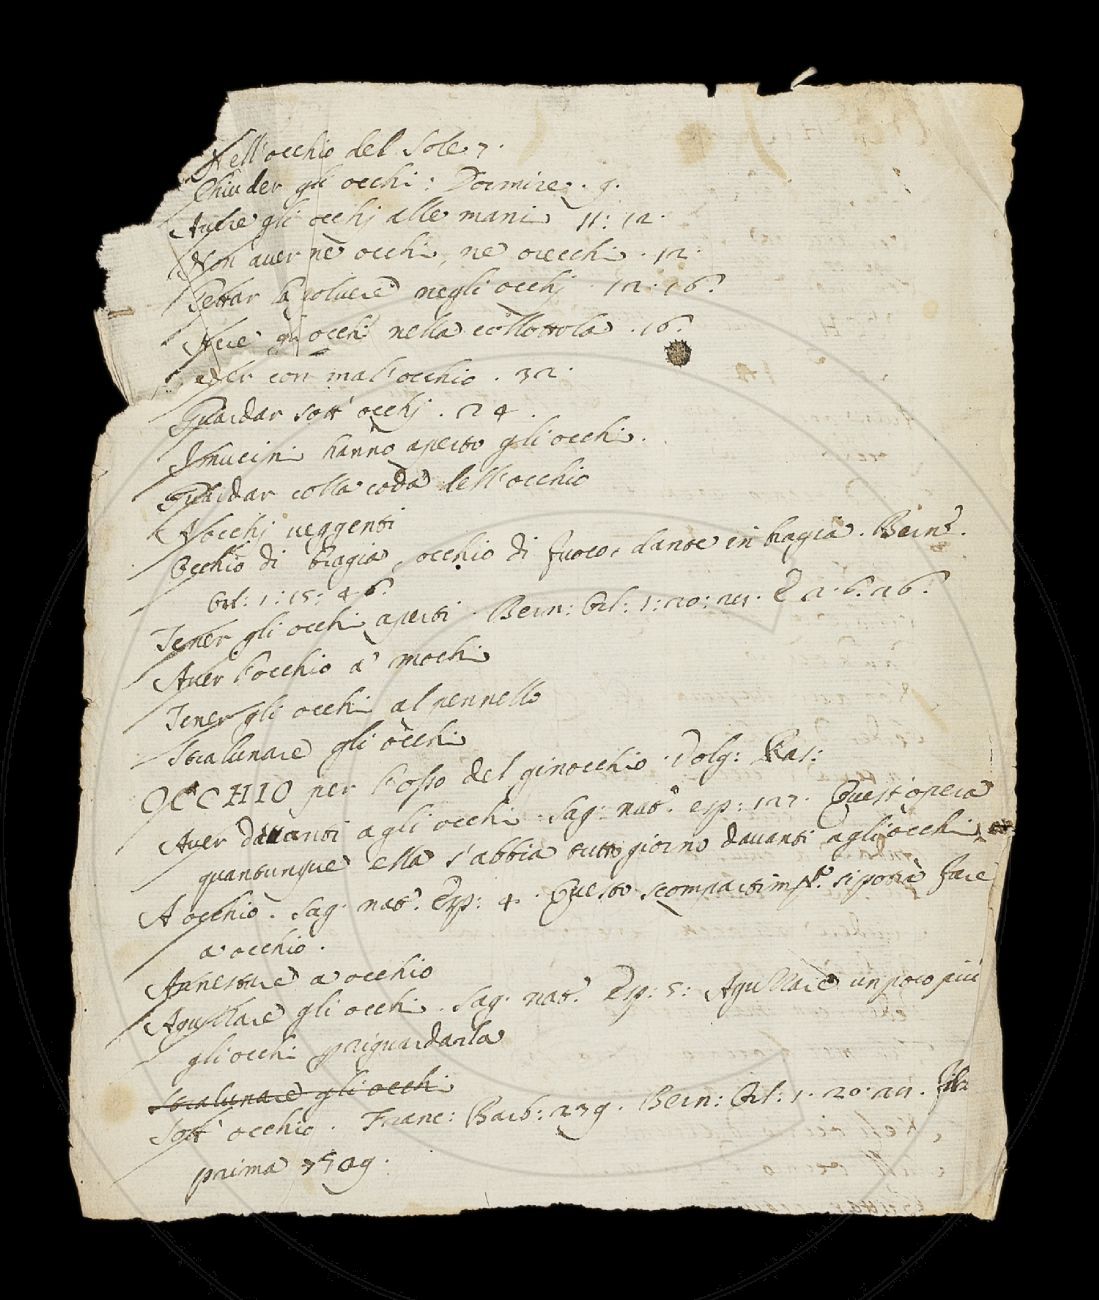 Nell'occhio del Sole 7.
Chiuder gli occhi: Dormire. 9.
Avere gli occhj alle mani 11: 12.
Non aver nè occhi, nè orecchi. 12.
Gettar la polvere negli occhj. 12. 16.
Avere gli occhi nella collottola. 16.
con mal'occhio. 32.
Guardar sott'occhj. 24.
I mucini hanno aperto gli occhi.
Guardar colla coda dell'occhio
A occhj veggenti
Occhio di bragia, occhio di fuoco, dante in bragia. Bern.
Orl: 1: 15: 46.
Tener gli occhi aperti. Bern: Orl: 1: 20: 24. E 2. 6. 26.
Aver l'occhio a' mochi
Tener gli occhi al pennello
Stralunare gli occhi
OCCHIO per l'osso del ginocchio. Volg: Ras:
Aver davanti agli occhi. Sag: nat. esp: 127. Quest'opera
quantunque ella s'abbia tutto giorno davanti agli occhi
A occhio. Sag: nat. Esp: 4. Questo scompartim.to si potrà fare
a occhio.
Annestare a occhio
Aguzzare gli occhi. Sag: nat. Esp: 5: Aguzzare un poco più
gli occhi priguardarla
Stralunare gli occhi
Sott'occhio. Franc: Barb: 239. Bern: Orl: 1. 20: 24. filz
prima 7529.